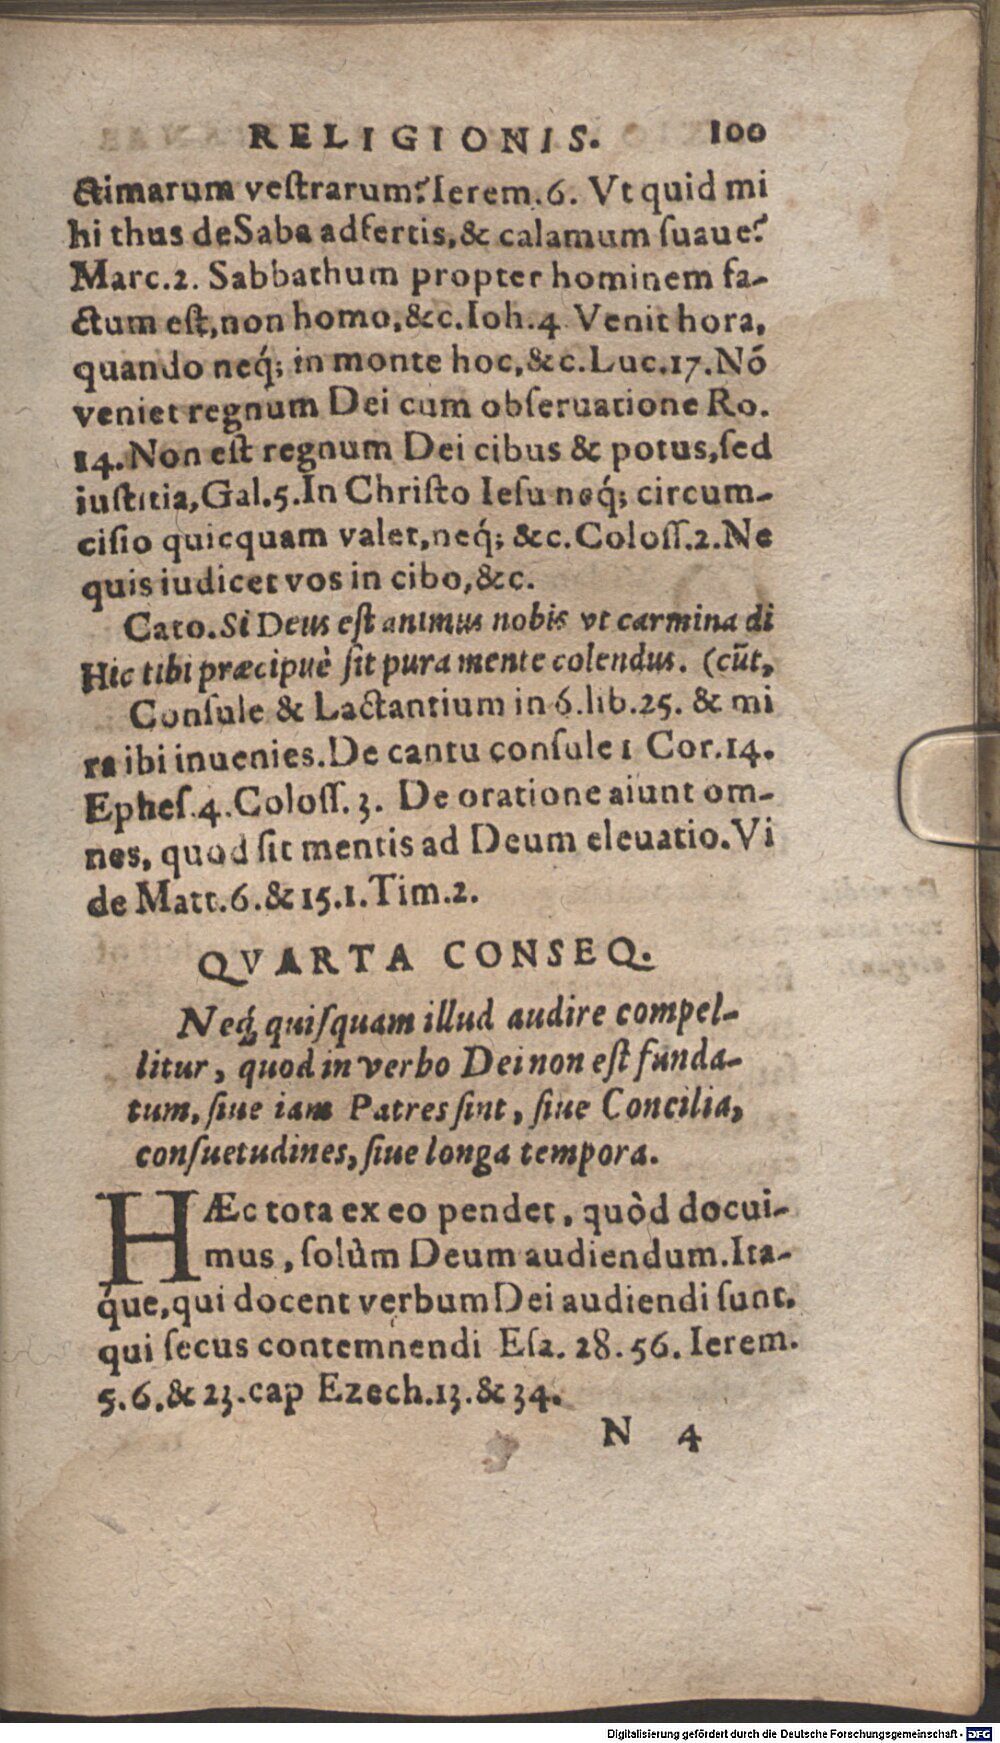 RELIGIONIS. 100
ctimarum veſtrarum? Ierem.6. Vt quid mi
hi thus deSaba adfertis,& calamum ſuaue?
Marc.2. Sabbathum propter hominem fa-
ctum eſt,non homo,&c.Ioh.4 Venit hora,
quando neq́; in monte hoc,&c.Luc.17.Nõ
veniet regnum Dei cum obſeruatione Ro.
14.Non eſt regnum Dei cibus & potus,ſed
iuſtitia,Gal.5.In Chriſto Ieſu neq́; circum-
ciſio quicquam valet,neq́; &c.Coloſſ.2.Ne
quis iudicet vos in cibo,&c.
Cato.Si Deus eſt animus nobis vt carmina di
Hic tibi præcipuè ſit pura mente colendus. (cũt,
Conſule & Lactantium in 6.lib.25. & mi
ra ibi inuenies.De cantu conſule 1 Cor.14.
Epheſ.4.Coloſſ.3. De oratione aiunt om-
nes, quod ſit mentis ad Deum eleuatio.Vi
de Matt.6.&15.1.Tim.2.
QVARTA CONSEQ.
Neq́; quiſquam illud audire compel-
litur, quod in verbo Dei non eſt funda-
tum, ſiue iam Patres ſint, ſiue Concilia,
conſuetudines, ſiue longa tempora.
HÆc tota ex eo pendet, quòd docui-
mus, ſolùm Deum audiendum.Ita-
que,qui docent verbum Dei audiendi ſunt.
qui ſecus contemnendi Eſa. 28.56. Ierem.
5.6.& 23.cap Ezech.13.& 34.
N 4
Digitalisierung gefördert durch die Deutsche Forschungsgemeinschaft - DFG